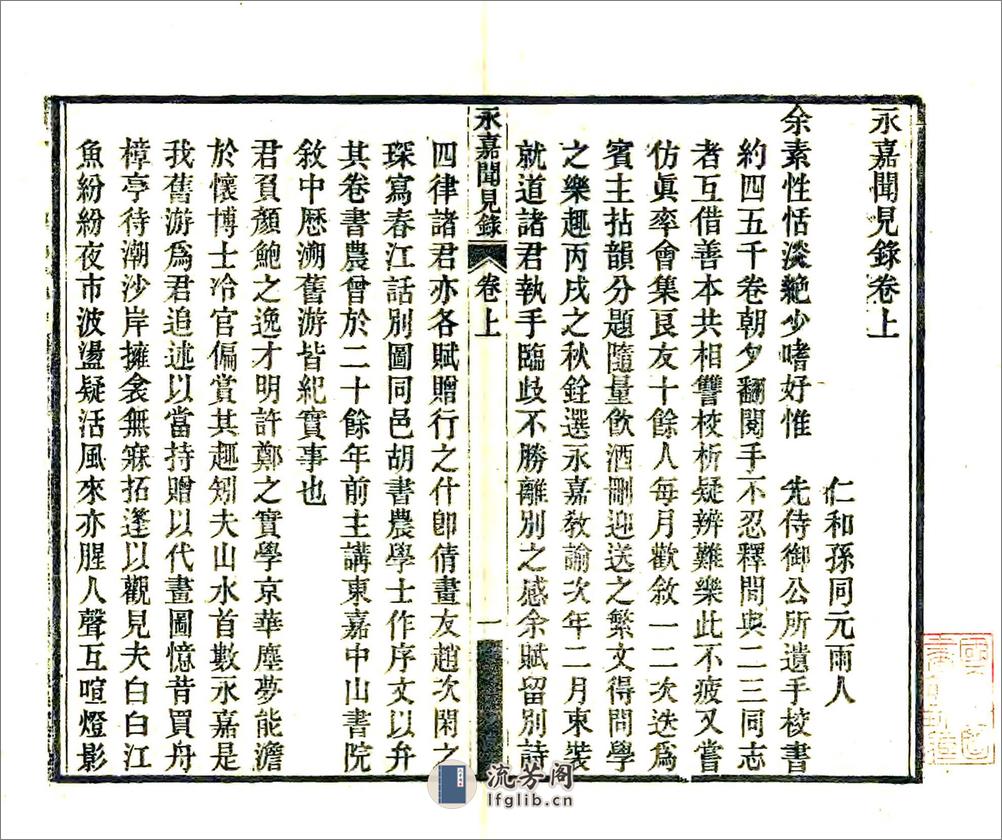 永嘉聞見錄卷上
仁和孫同元雨人
余素性恬淡絶少嗜好惟 先侍御公所遺手校書
約四五千卷朝夕翻閱手不忍釋閒與二三同志
者互借善本共相讐校析疑辨難樂此不疲又嘗
仿眞率會集良友十餘人每月歡敘一二次迭爲
賓主拈韻分題隨量飮酒刪迎送之繁文得問學
之樂趣丙戌之秋銓選永嘉敎諭次年二月東裝
就道諸君執手臨歧不勝離別之感余賦留別詩
永嘉聞見錄 卷上 一
四律諸君亦各賦贈行之什卽倩畫友趙次閑之
琛寫春江話別圖同邑胡書農學士作序文以弁
其卷書農曾於二十餘年前主講東嘉中山書院
敘中歴溯舊游皆紀實事也
君頁顏鮑之逸才明許鄭之實學京華塵夢能澹
於懷博士冷官偏賞其趣矧夫山水首數永嘉是
我舊游爲君追述以當持贈以代畫圖憶昔買舟
樟亭待潮沙岸擁衾無寐拓篷以觀見夫白白江
魚紛紛夜市波盪疑活風來亦腥人聲互喧燈影
流芳阁
lfglib.cn